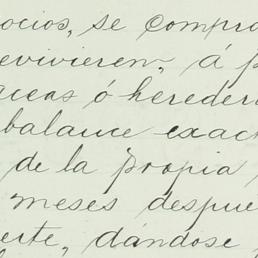 ocios, se compro
evivieren, á p
aceas ó hereder
balance exact
de la propia
meses despue
erte, dándose